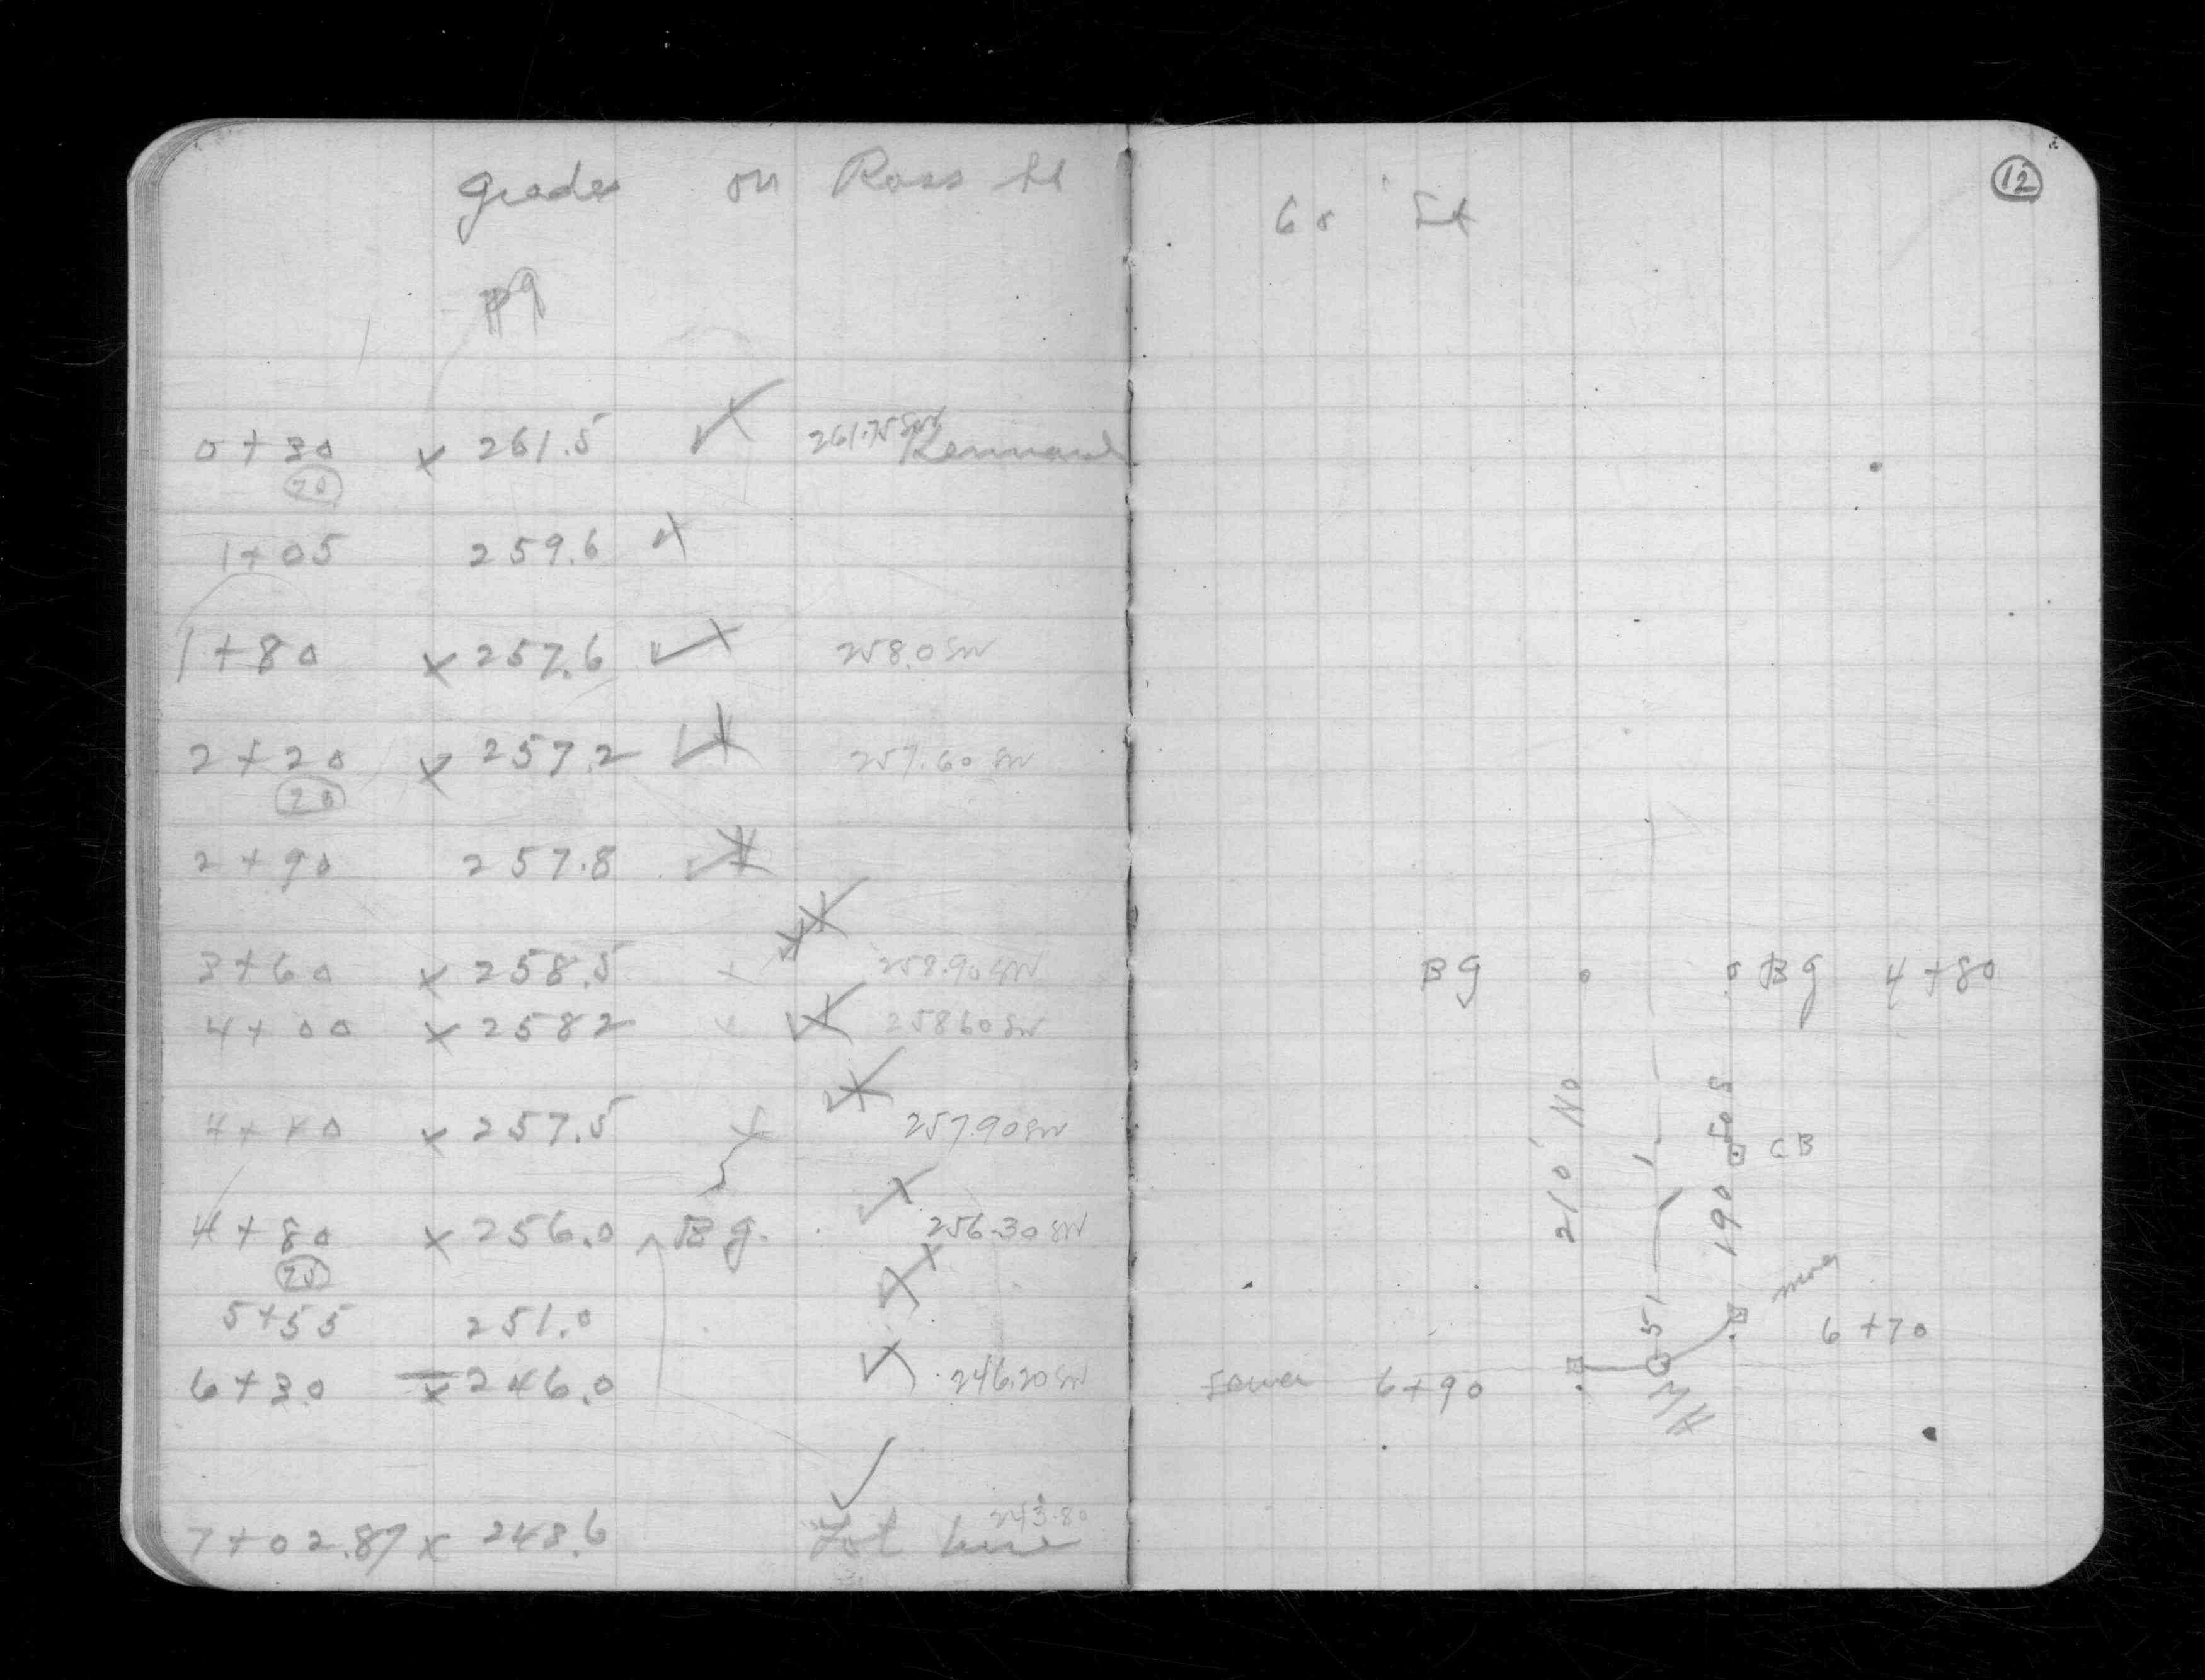 grades on Ross St
pg
0+30 x 261.5 261.75 SW Kennard
20
1+05 259.6
1+80 x 257.6 258.0 SW
2+20 x 257.2 257.60 SW
20
2+90 257.8
3+60 x 258.5 258.90 SW
4+00 x 2582 25860 SW
4+40 x 257.5 257.90 SW
4+80 x 256.0 BG. 256.30 SW
25
5+55 251.0
6+30 x 246.0 246.20 SW
243.80
7+02.87 x 243.6 Lot line
12
BG BG 4+80
210' No
190
CB
51
6+70
6+90
MH